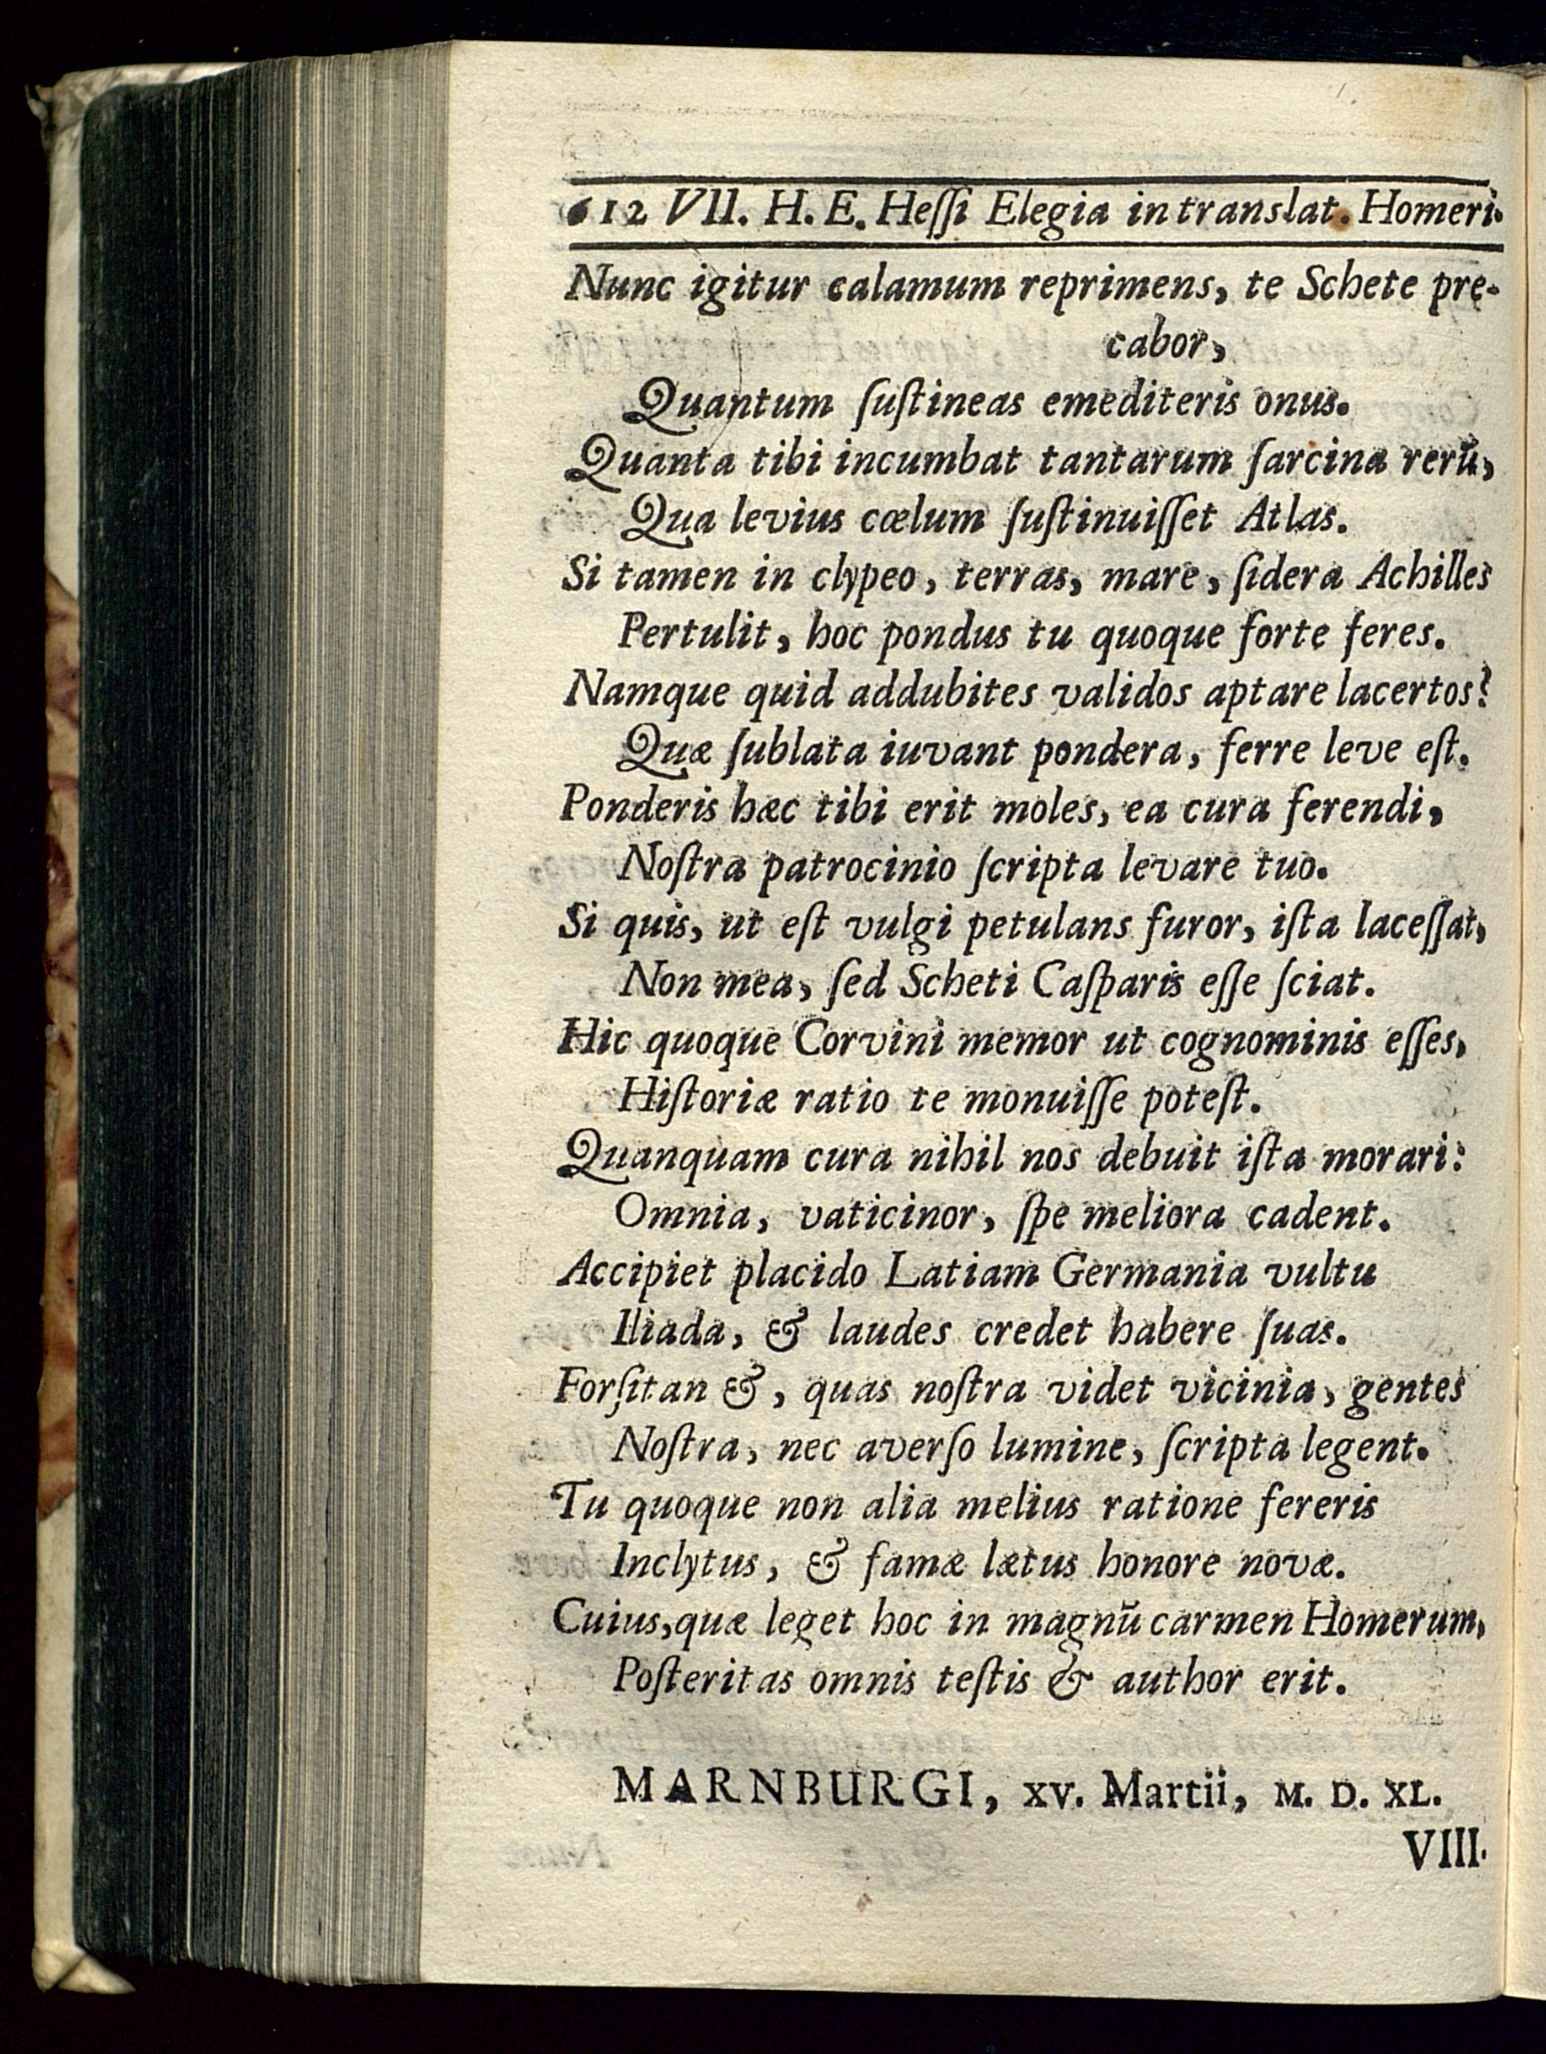 612 VII. H. E. Heſſi Elegia in translat. Homeri.
Nunc igitur calamum reprimens, te Schete pre-
cabor,
Quantum ſuſtineas emediteris onus.
Quanta tibi incumbat tantarum ſarcina rerū,
Qua levius cœlum ſuſtinuiſſet Atlas.
Si tamen in clypeo, terras, mare, ſidera Achilles
Pertulit, hoc pondus tu quoque forte feres.
Namque quid addubites validos aptare lacertos?
Quæ ſublata iuvant pondera, ferre leve eſt.
Ponderis hæc tibi erit moles, ea cura ferendi,
Noſtra patrocinio ſcripta levare tuo.
Si quis, ut eſt vulgi petulans furor, iſta laceſſat,
Non mea, ſed Scheti Caſparis eſſe ſciat.
Hic quoque Corvini memor ut cognominis eſſes,
Hiſtoriæ ratio te monuiſſe poteſt.
Quanquam cura nihil nos debuit iſta morari:
Omnia, vaticinor, ſpe meliora cadent.
Accipiet placido Latiam Germania vultu
Iliada, & laudes credet habere ſuas.
Forſitan &, quas noſtra videt vicinia, gentes
Noſtra, nec averſo lumine, ſcripta legent.
Tu quoque non alia melius ratione fereris
Inclytus, & famæ lætus honore novæ.
Cuius, quæ leget hoc in magnū carmen Homerum,
Poſteritas omnis teſtis & author erit.
MARNBURGI, XV. Martii, M. D. XL.
VIII.